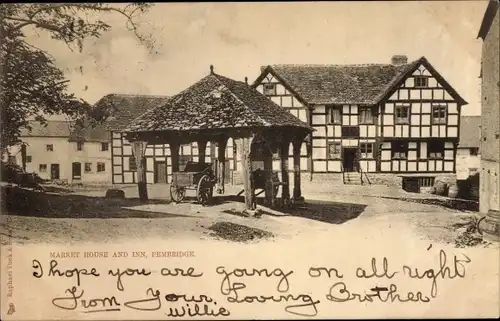 MARKET HOUSE AND INN, PEMBRIDGE.
I hope you are going on all right
From Your Loving Brother
Willie
Raphael Tuck &